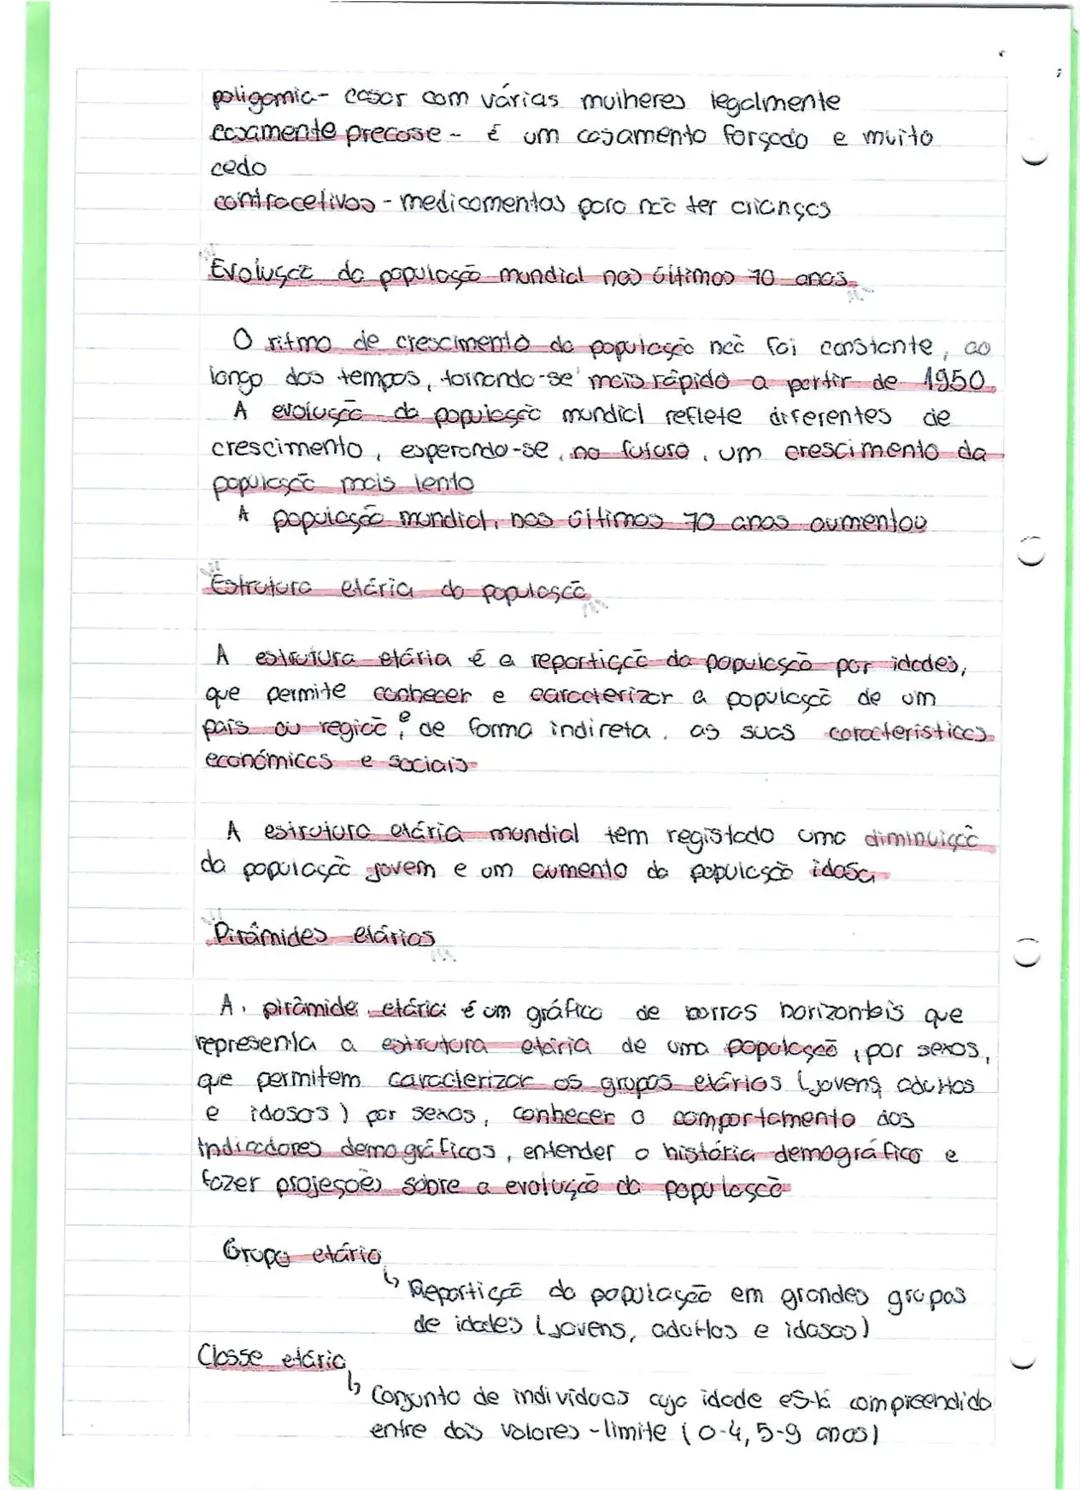 poligamia- casar com várias mulheres legalmente
casamente precose - é um casamento forsado e muito
cedo
contracetivos - medicamentos para não ter crianças
Evolução da população mundial nos últimos 70 anos
O ritmo de crescimento da população não foi constante, ao
longo dos tempos, tornando-se mais rápido a partir de 1950.
A evolução da população mundial reflete diferentes de
crescimento, esperando-se, no futuro, um crescimento da
população mais lento
A população mundial, nos últimos 70 anos aumentou
Estrutura etária da população
A estrutura etária é a repartição da população por idades,
que permite conhecer e caracterizar a população de um
país ou região e, de forma indireta, as suas caracteristicas
económicas e sociais
A estrutura etária mundial tem registado uma diminuição
da população jovem e um aumento da população idosa
Pirâmides etárias
A. pirâmide etária é um gráfico de barras horizontais que
representa a estrutura etária de uma população, por sexos,
que permitem caracterizar os grupos etários (jovens, adultos
e idosos) por sexos, conhecer o comportamento dos
indicadores demográficos, entender a história demográfica e
fazer projesões sobre a evolução da população
Grupo etário
↳ Repartição da população em grandes grupos
de idades (jovens, adultos e idosos)
Classe etária
↳ Conjunto de individuos cuja idade está compreendida
entre dois valores-limite (0-4, 5-9 anos)